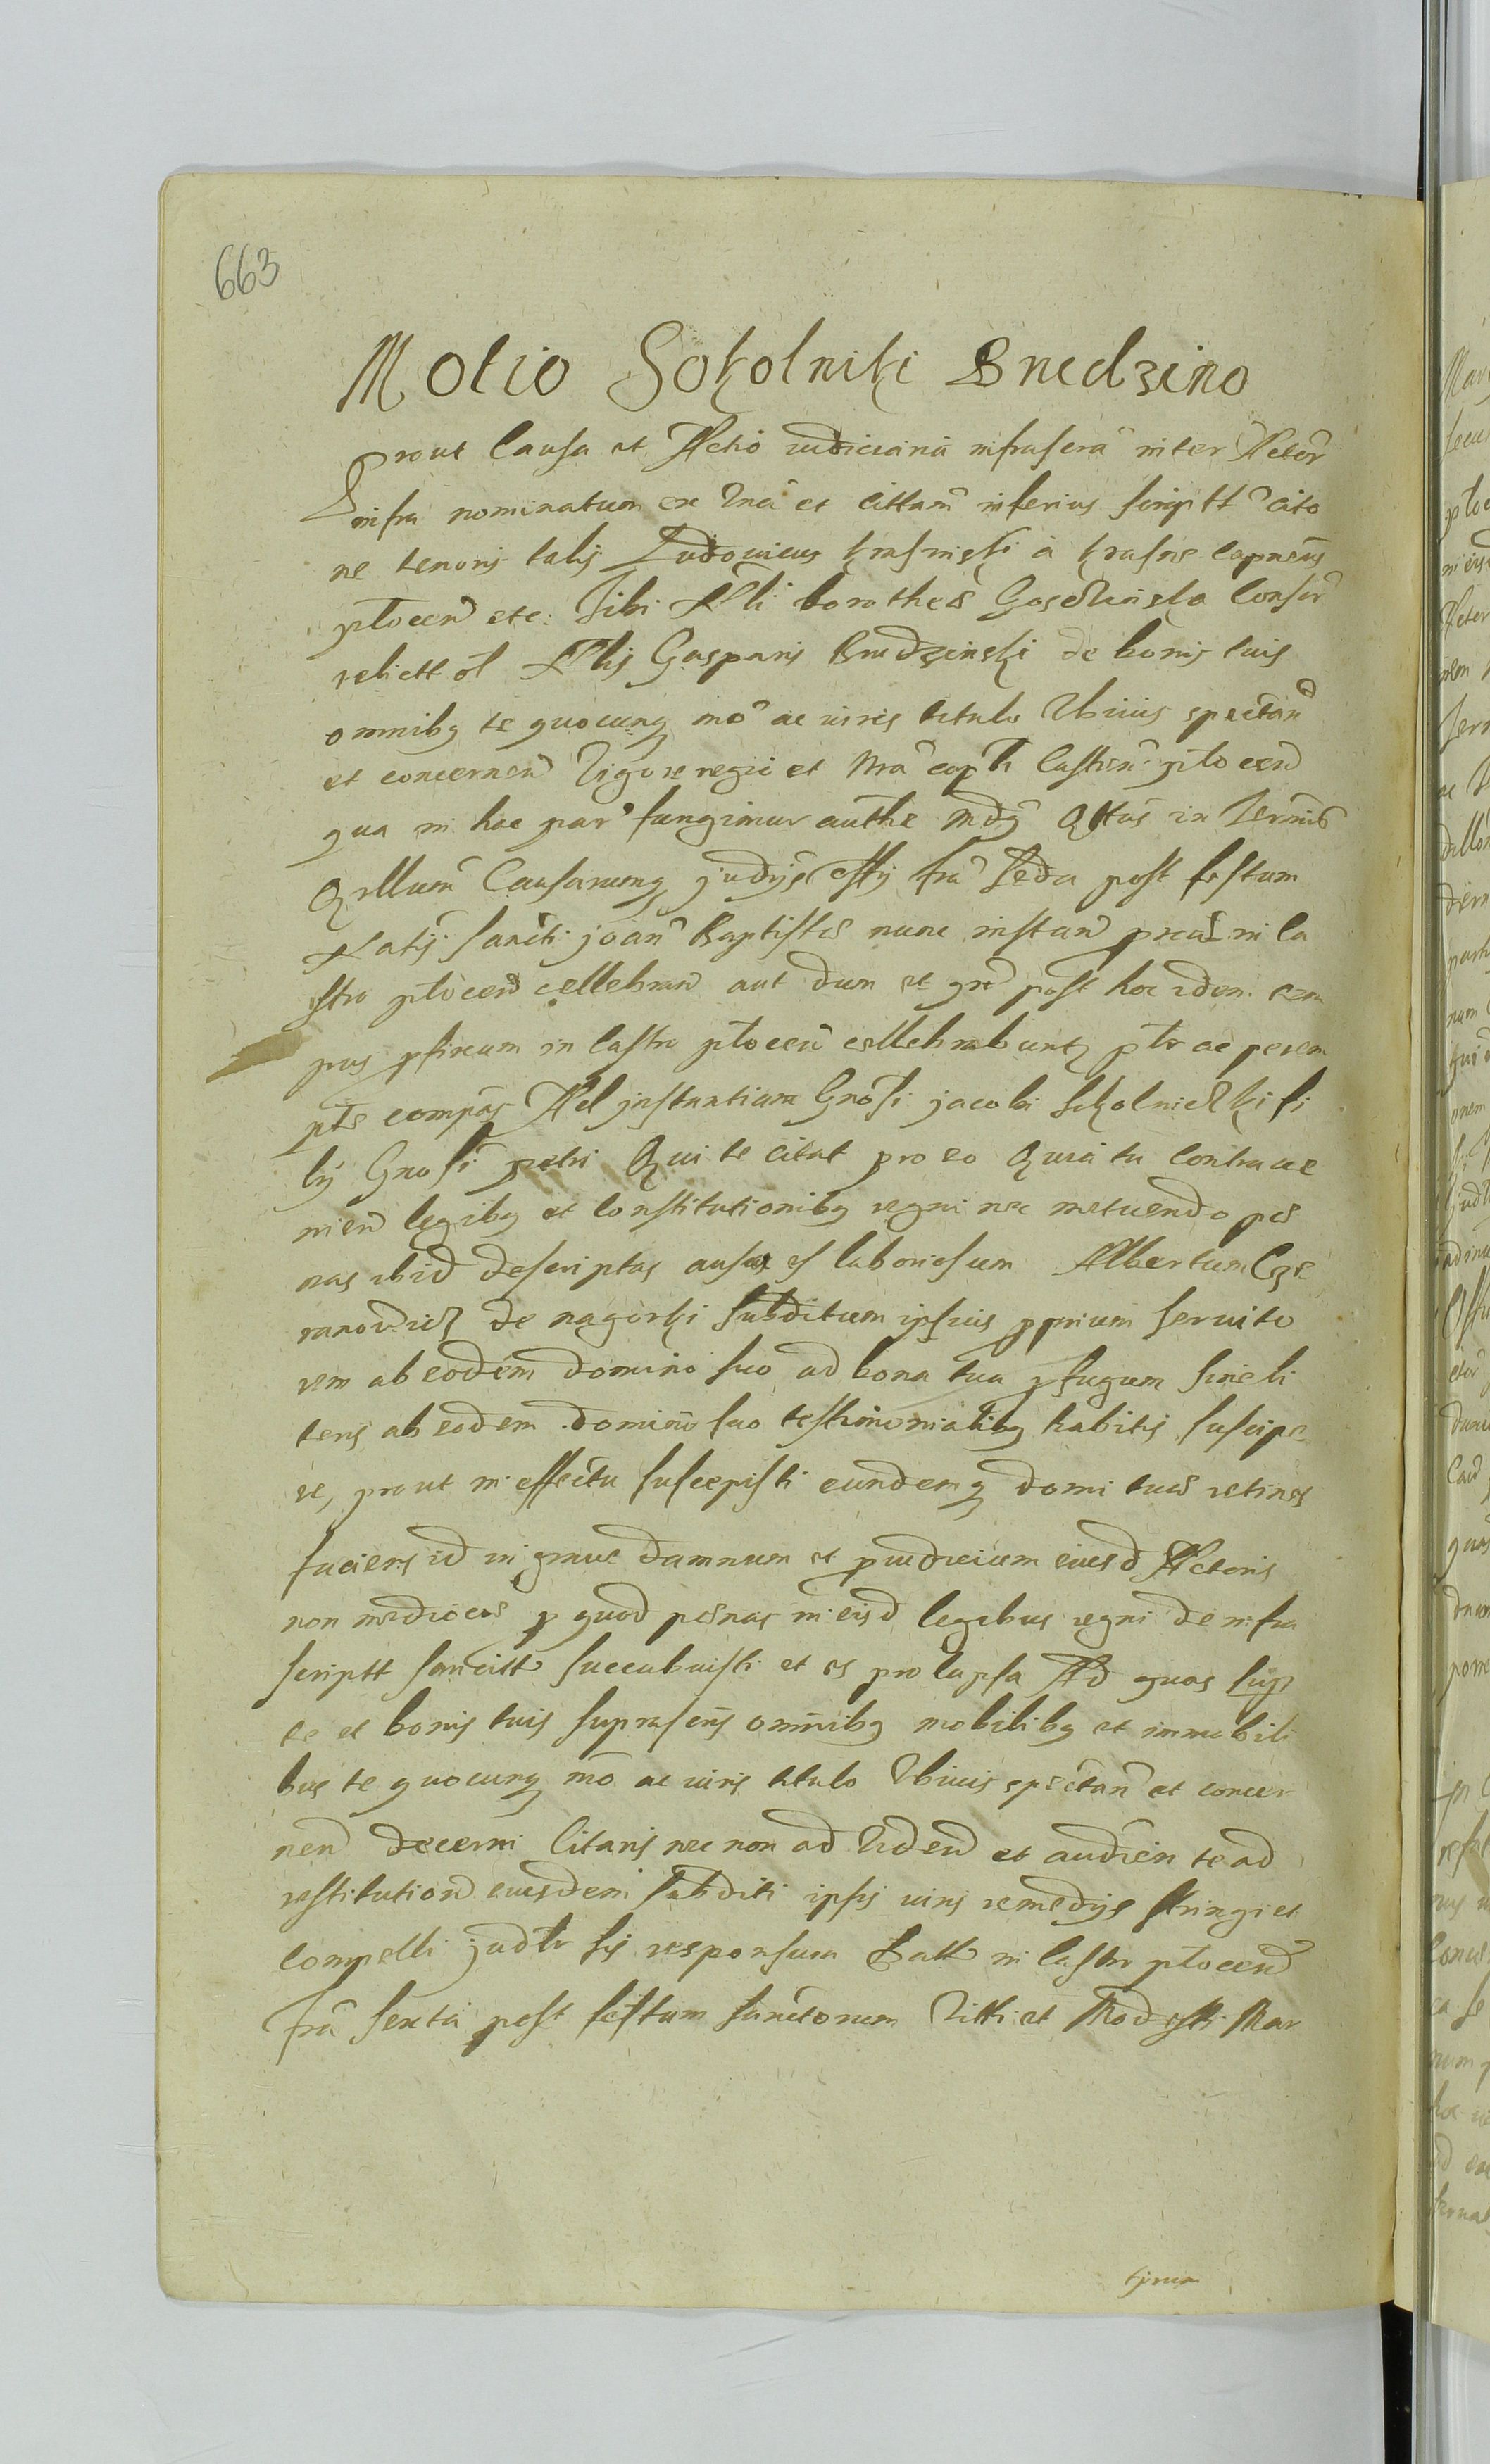 663
Motio Sokolniki Brudzino
Prout Causa et Actio iudiciaria infrascrā inter Actorē
infra nominatum ex vnā et cittam inferius scriptt cito
ne tenoris talis Ludouicus krasinski a krasne capneūs
plocen etc: Tibi Nbli dorotheae Consor
relictt ol Nblis Gasparis Brudzinski de bonis tuis
omnibq te quocunq mō ac iuris titulo Vbiuis spectan
et concernen Vigore regio et nrā capti castren plocen
qua in hac par fungimur authe mdg in Termis
Qrllum Causarumq judys feria post festum
Natis sancti joan Baptistae nunc instan in Ca
stro plocen cellebran aut dum et qn post hoc idem tem
pus pficum in Castro plocen cellebrabuntq ptr ac perem
pte compās Ad jnstantiam Gnosi jacobi Sokolnickki fi
lÿ Gnosi petri Qui te citat pro eo Quia tu contraue
nien legibq et Constitutionibq regni nec metuendo pae
nas ibid descriptas ausa es laboriosum Albertum Cze
ranowicz de nagorki subditum ipsius pprium seruito
rem ab eodem domino suo ad bona tua pfugum sine li
teris ab eodem domino suo testimonialibq habitis suscipe
re, prout in effectu suscepisti eundemq domi tuae retines
faciens id in graue damnum et pręiudicium eiusd Actoris
non mediocre p quod paenas in eisd legibus regni de infra
scriptt sancitt succubuisti et es prolapsa Ad quas sup
te et bonis tuis suprascris omnibq mobilibq et immobili
bus te quocunq mō ac iuris titulo Vbiuis spectan et concer
nen decerni Citaris nec non ad Viden et audien te ad
restitution eiusdem subditi ipsis iuris remedys stringi et
compelli judtr sis responsura Datt in Castro plocen
fria sexta post festum sanctorum Vitti et Modesti Mar
tyrum